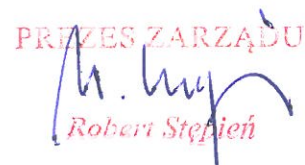 PREZES ZARZĄDU
Robert Stępień